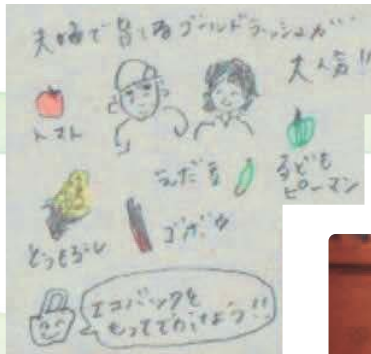 夫婦で育てるゴールドラッシュが…
大人気!!
トマト
えだ豆
子どもピーマン
とうもろこし
ゴボウ
エコバックを
もってでかけよう!!